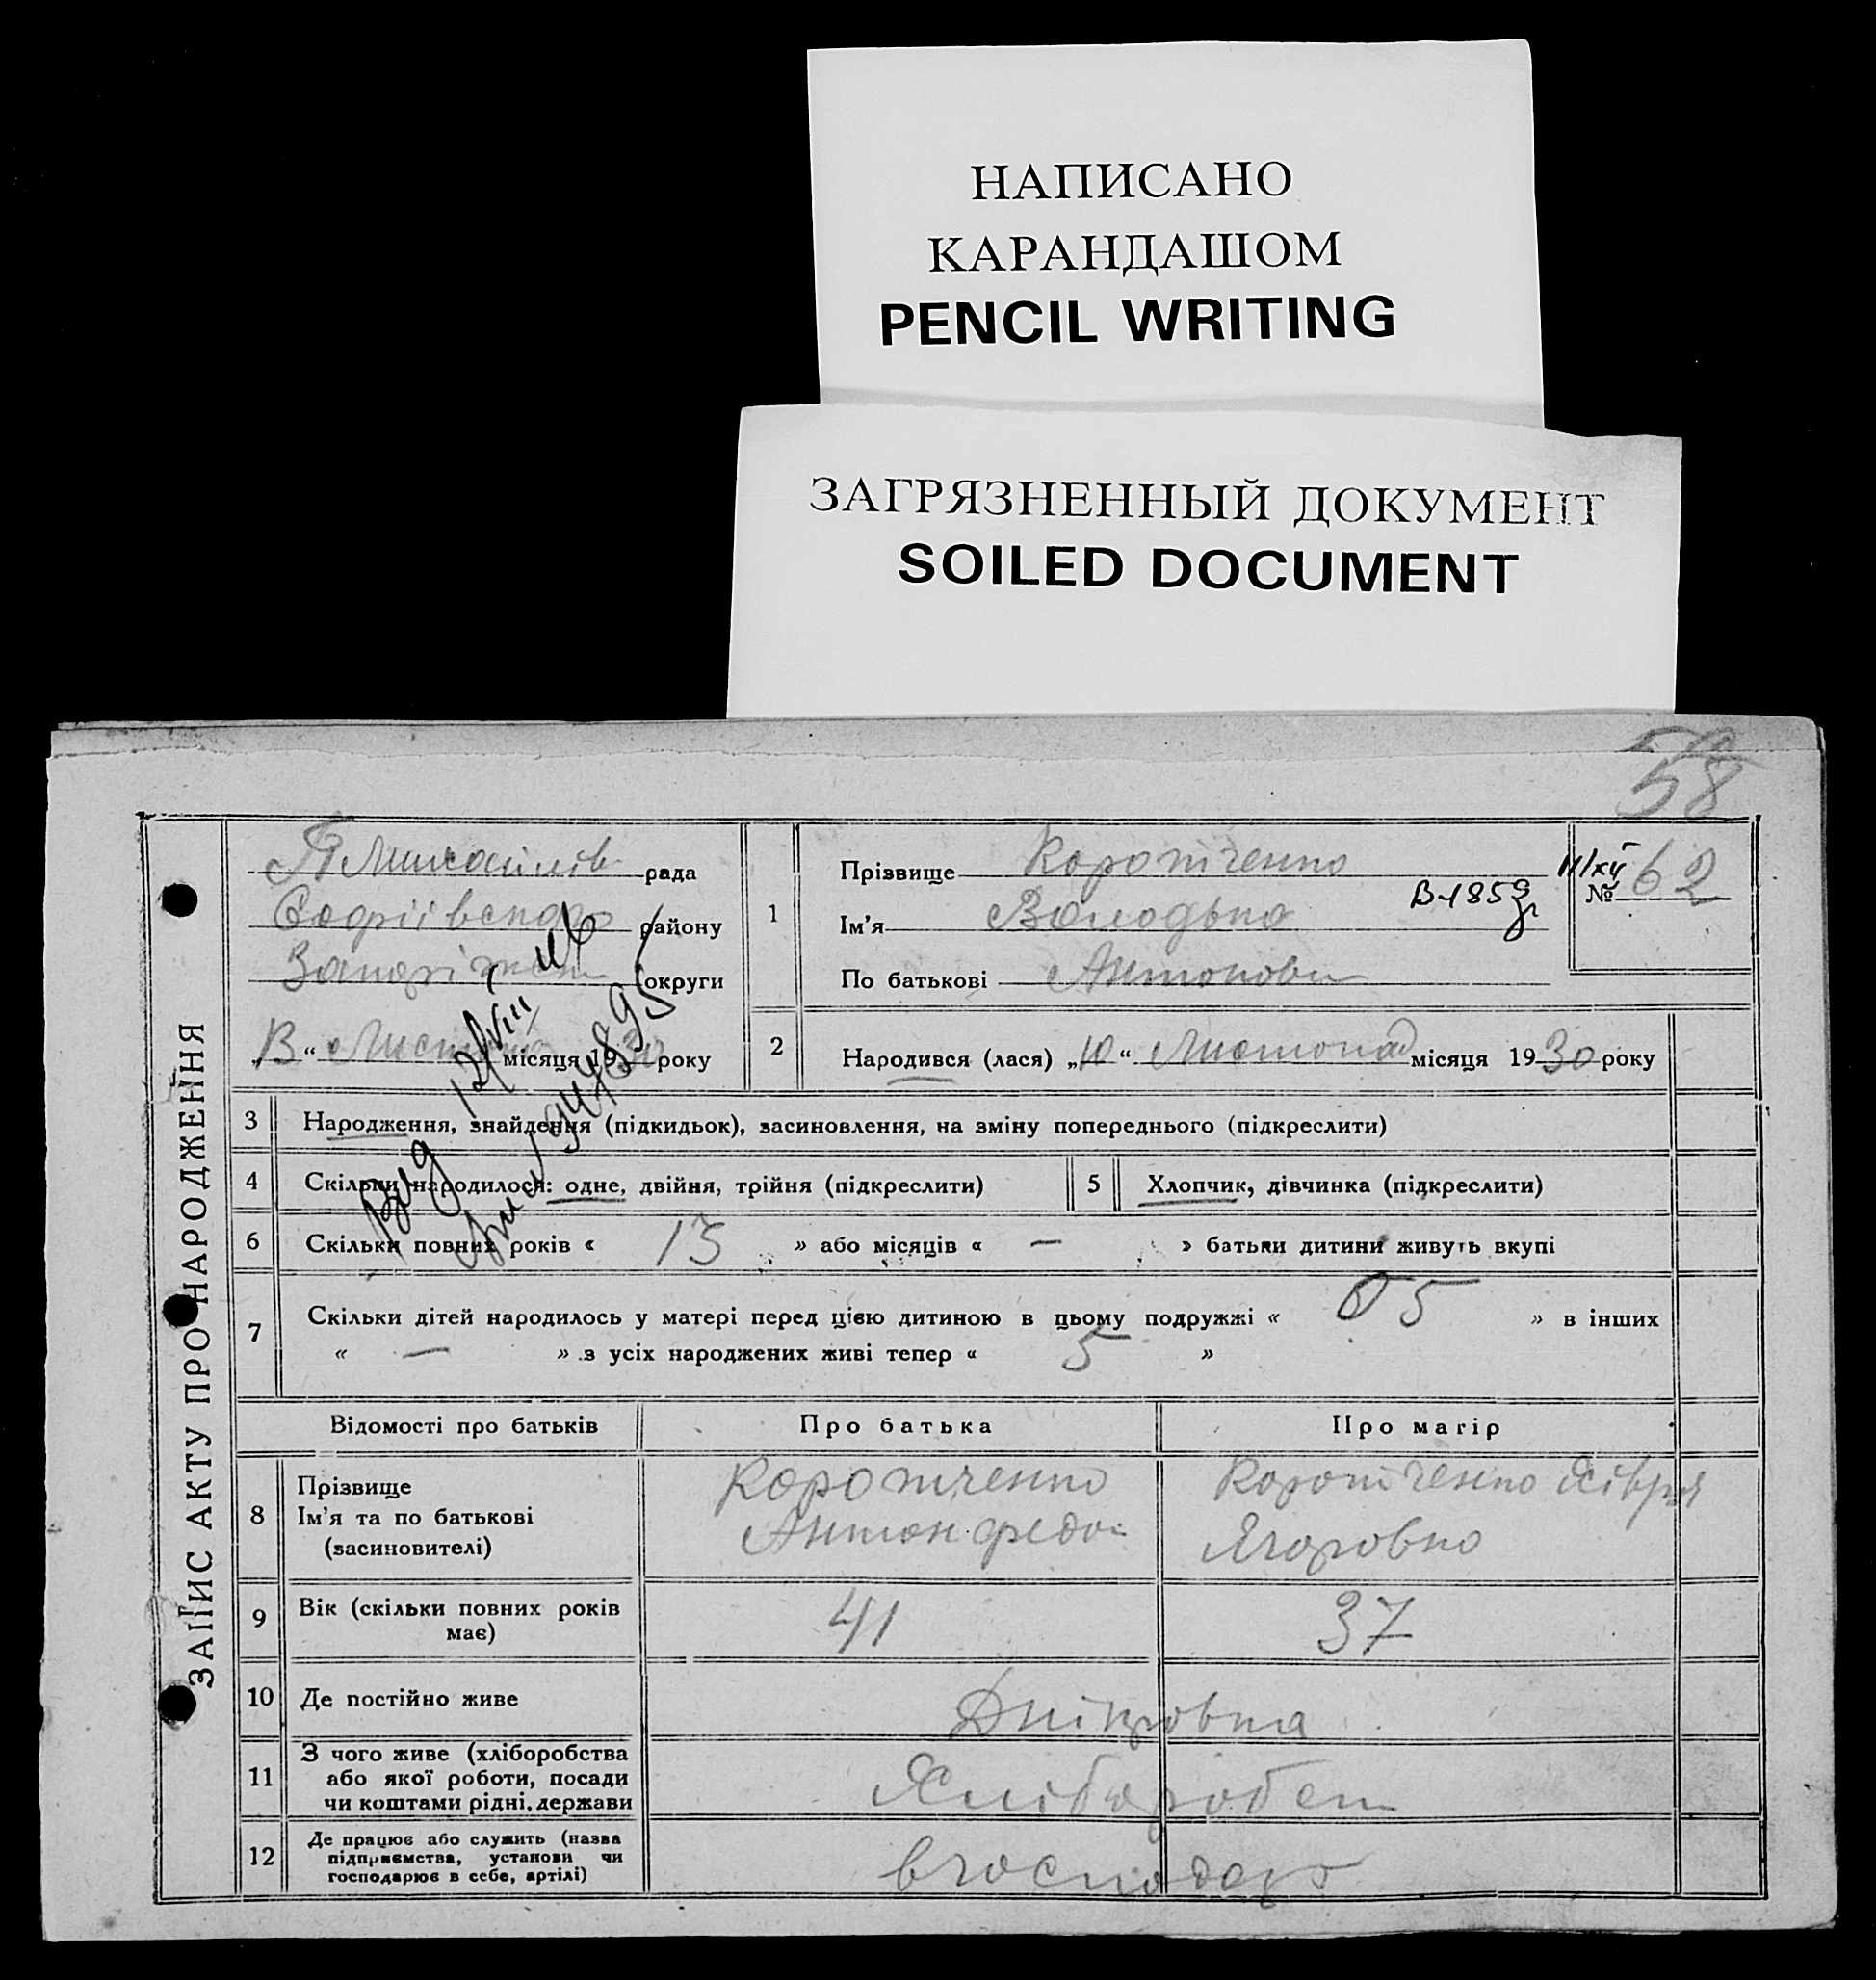 НАПИСАНО
КАРАНДАШОМ
PENCIL WRITING
ЗАГРЯЗНЕННЫЙ ДОКУМЕНТ
SOILED DOCUMENT
58
ЗАПИС АКТУ ПРО НАРОДЖЕННЯ
рада
району
округи
місяця 1930 року
1
Прізвище Коротченко
Ім'я Володька
По батькові Антонови
В-185
№ 62
2
Народився (лася) „10“ Листопад місяця 1930 року
3 Народження, знайдення (підкидьок), засиновлення, на зміну попереднього (підкреслити)
4 Скільки народилося: одне, двійня, трійня (підкреслити)
5 Хлопчик, дівчинка (підкреслити)
6 Скільки повних років « 13 » або місяців « — » батьки дитини живуть вкупі
7 Скільки дітей народилось у матері перед цією дитиною в цьому подружжі « 5 » в інших
« — » з усіх народжених живі тепер « 5 »
Відомості про батьків
Про батька
Про матір
8 Прізвище
Ім'я та по батькові
(засиновителі)
Коротченко
Антон Федо
Коротченко Хівря
Ягоровна
9 Вік (скільки повних років
має)
41
37
10 Де постійно живе
Дніпровка
11 З чого живе (хліборобства
або якої роботи, посади
чи коштами рідні, держави
Хлібороб
12 Де працює або служить (назва
підприємства, установи чи
господарює в себе, артілі)
в господар